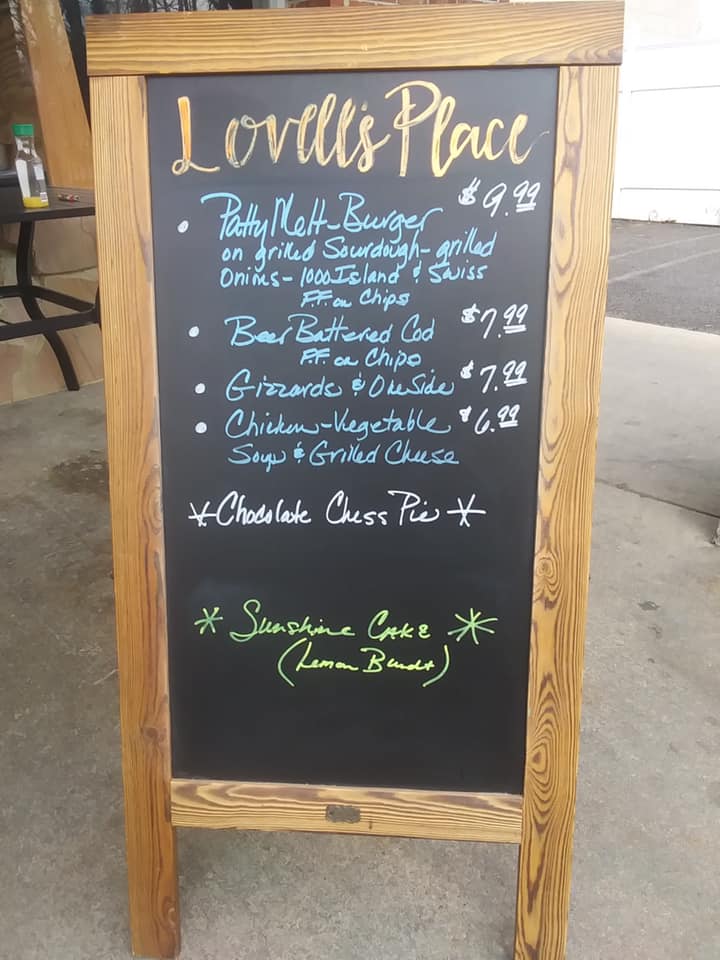 Lovell's Place
• Patty Melt-Burger $9.99
on grilled Sourdough-grilled
Onions-1000 Island & Swiss
F.F. or Chips
• Beer Battered Cod $7.99
F.F. or Chips
• Gizzards & One Side $7.99
• Chicken-Vegetable $6.99
Soup & Grilled Cheese
* Chocolate Chess Pie *
* Sunshine Cake *
(Lemon Bundt)